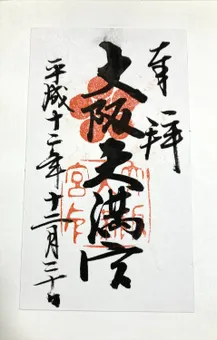 奉拝
大阪天満宮
平成十二年十二月三十日